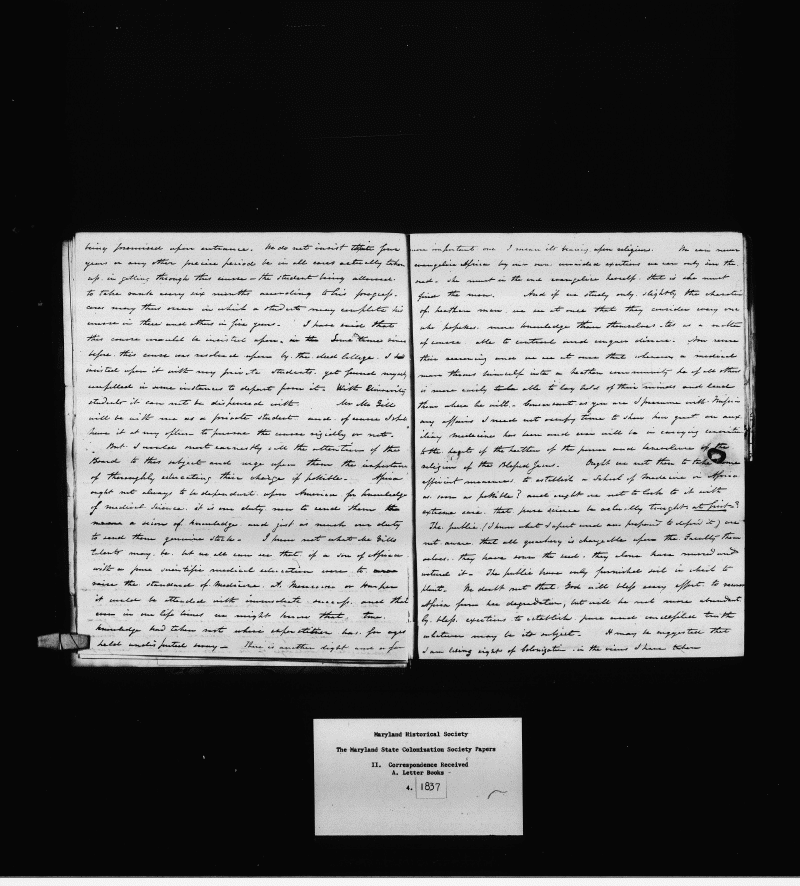 being promised upon entrance. We do not insist that four
years or any other precise period be in all cases actually taken
up in getting through this course - the student being allowed
to take rank every six months according to his progress.
cases may thus occur in which a student may complete his
course in three and others in five years. I have said that
this course would be insisted upon, in the
before this course was resolved upon by the
insisted upon it with my private students, yet found myself
compelled in some instances to depart from it. With University
students it can not be dispensed with. Mr McGill
will be with me as a private student and of course I shall
have it at my option to pursue the course rigidly or not.
But I would most earnestly call the attention of the
Board to this subject and urge upon them the importance
of thoroughly educating their charge if possible. Africa
ought not always to be dependent upon America for knowledge
of medical science. it is our duty now to send them
a scion of knowledge and just as much our duty
to send them genuine stock. I know not what McGill's
talents may be. but we all can see that if a son of Africa
with a pure scientific medical education were to
raise the standard of Medicine at Monrovia or Harper
it would be attended with immediate success, and that
even in our life times we might know that true
knowledge had taken root where superstition has for ages
held undisputed sway - There is another light and a far
more important one I mean its bearing upon religion. We can never
evangelise Africa by our own unaided exertions we can only sow the
seed. she must in the end evangelise herself. that is she must
find the men. And if we study only slightly the character
of heathen men, we see at once that they consider every one
who possesses more knowledge than themselves as a matter
of course able to control and conquer disease.
their reasoning and we see at once that whenever a medical
man throws himself into a heathen community he of all others
is more easily able to lay hold of their minds and lead
them where he will. Conversant as you are I presume with Mission-
ary affairs I need not occupy time to show how great an aux-
iliary medicine has been and ever will be in carrying conviction
to the hearts of the heathen of the power and benevolence of the
religion of the Blessed Jesus. Ought we not then to take some
efficient measures to establish a School of Medicine in Africa
as soon as possible? and ought we not to look to it with
extreme care, that pure science be actually taught at first?
The public (I know what I assert and am prepared to defend it) are
not aware that all quackery is chargeable upon the Faculty them
selves. they have sown the seed. they alone have nursed and
watered it. The public have only furnished soil in which to
plant. We doubt not that God will bless every effort to rescue
Africa from her degradation, but will he not more abundant
ly bless exertions to establish pure and undefiled truth
whatever may be its subject. It may be suggested that
I am losing sight of Colonization in the views I have taken
Maryland Historical Society
The Maryland State Colonization Society Papers
II. Correspondence Received
A. Letter Books
4. 1837